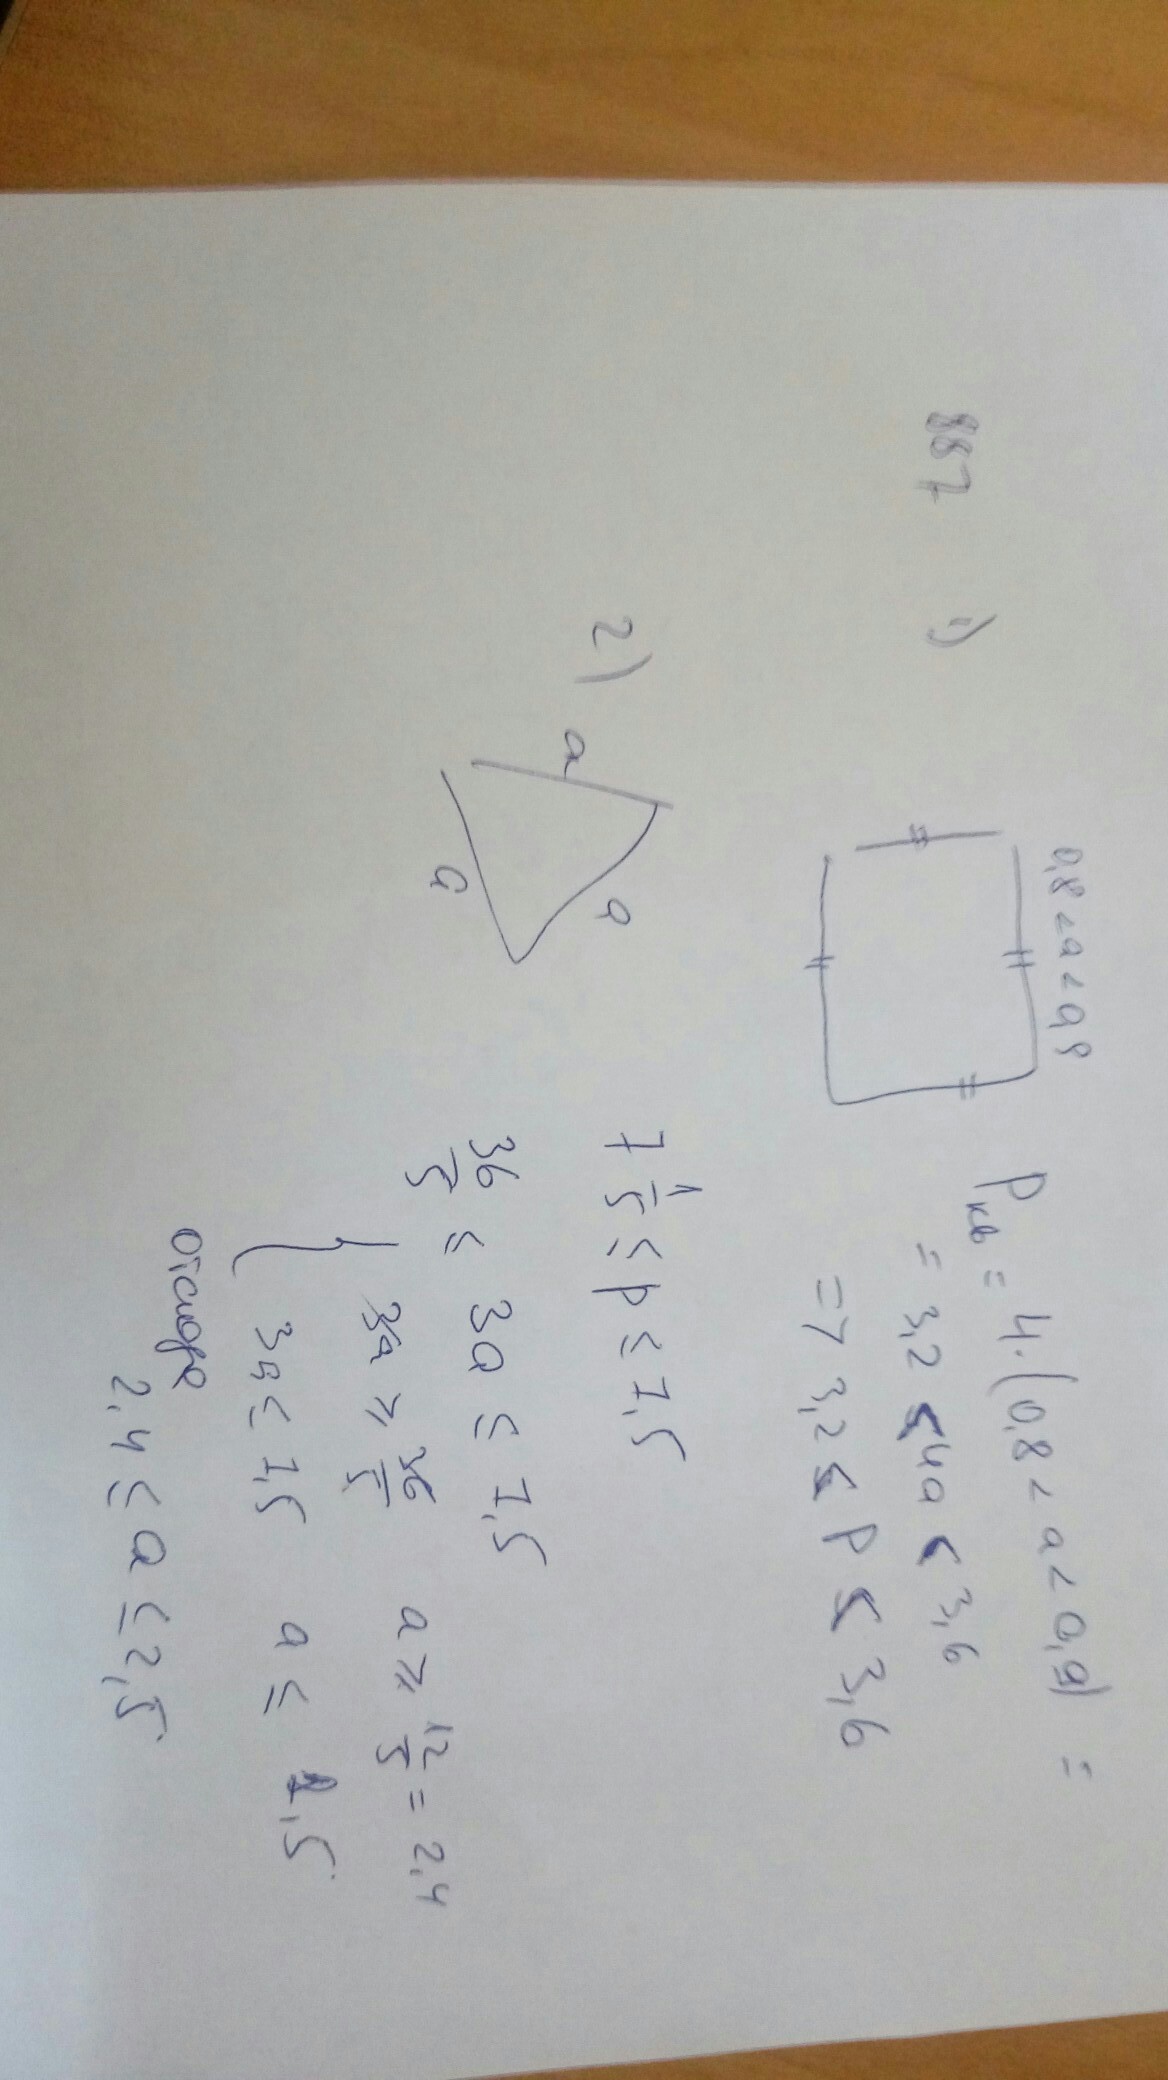 887 1)
0,8 < a < 0,9
Pкв = 4·(0,8 < a < 0,9) =
= 3,2 ≤ 4a ≤ 3,6
=> 3,2 ≤ P ≤ 3,6
2)
a a a
7 1/5 ≤ P ≤ 7,5
36/5 ≤ 3a ≤ 7,5
{ 3a ≥ 36/5 a ≥ 12/5 = 2,4
3a ≤ 7,5 a ≤ 2,5
отсюда
2,4 ≤ a ≤ 2,5